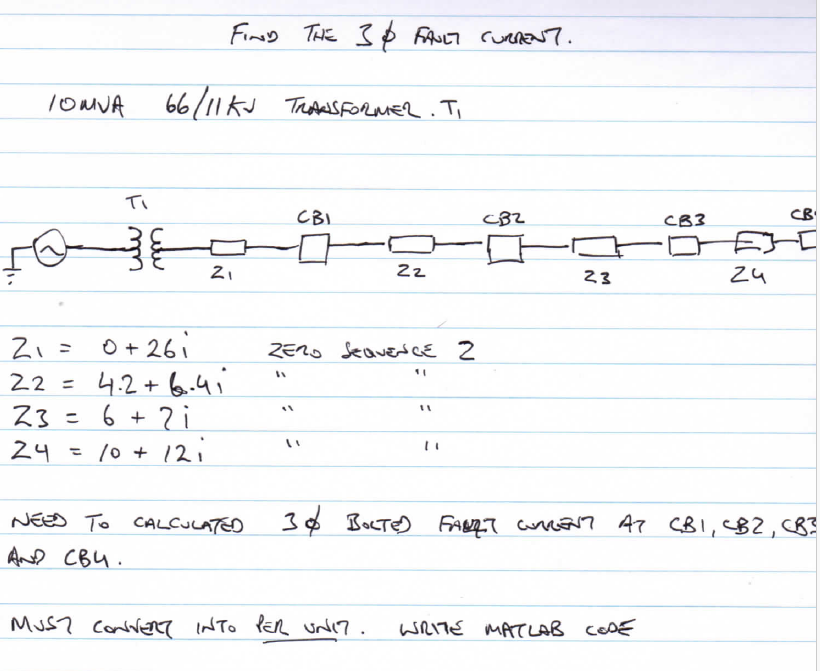 FIND THE 3 ϕ FAULT CURRENT.
10MVA 66/11KV TRANSFORMER. T1
T1
CB1
CB2
CB3
CB
Z1
Z2
Z3
Z4
Z1 = 0 + 26i ZERO SEQUENCE Z
Z2 = 4.2 + 6.4i " "
Z3 = 6 + 7i " "
Z4 = 10 + 12i " "
NEED TO CALCULATED 3ϕ BOLTED FAULT CURRENT AT CB1, CB2, CB3
AND CB4.
MUST CONVERT INTO PER UNIT. WRITE MATLAB CODE